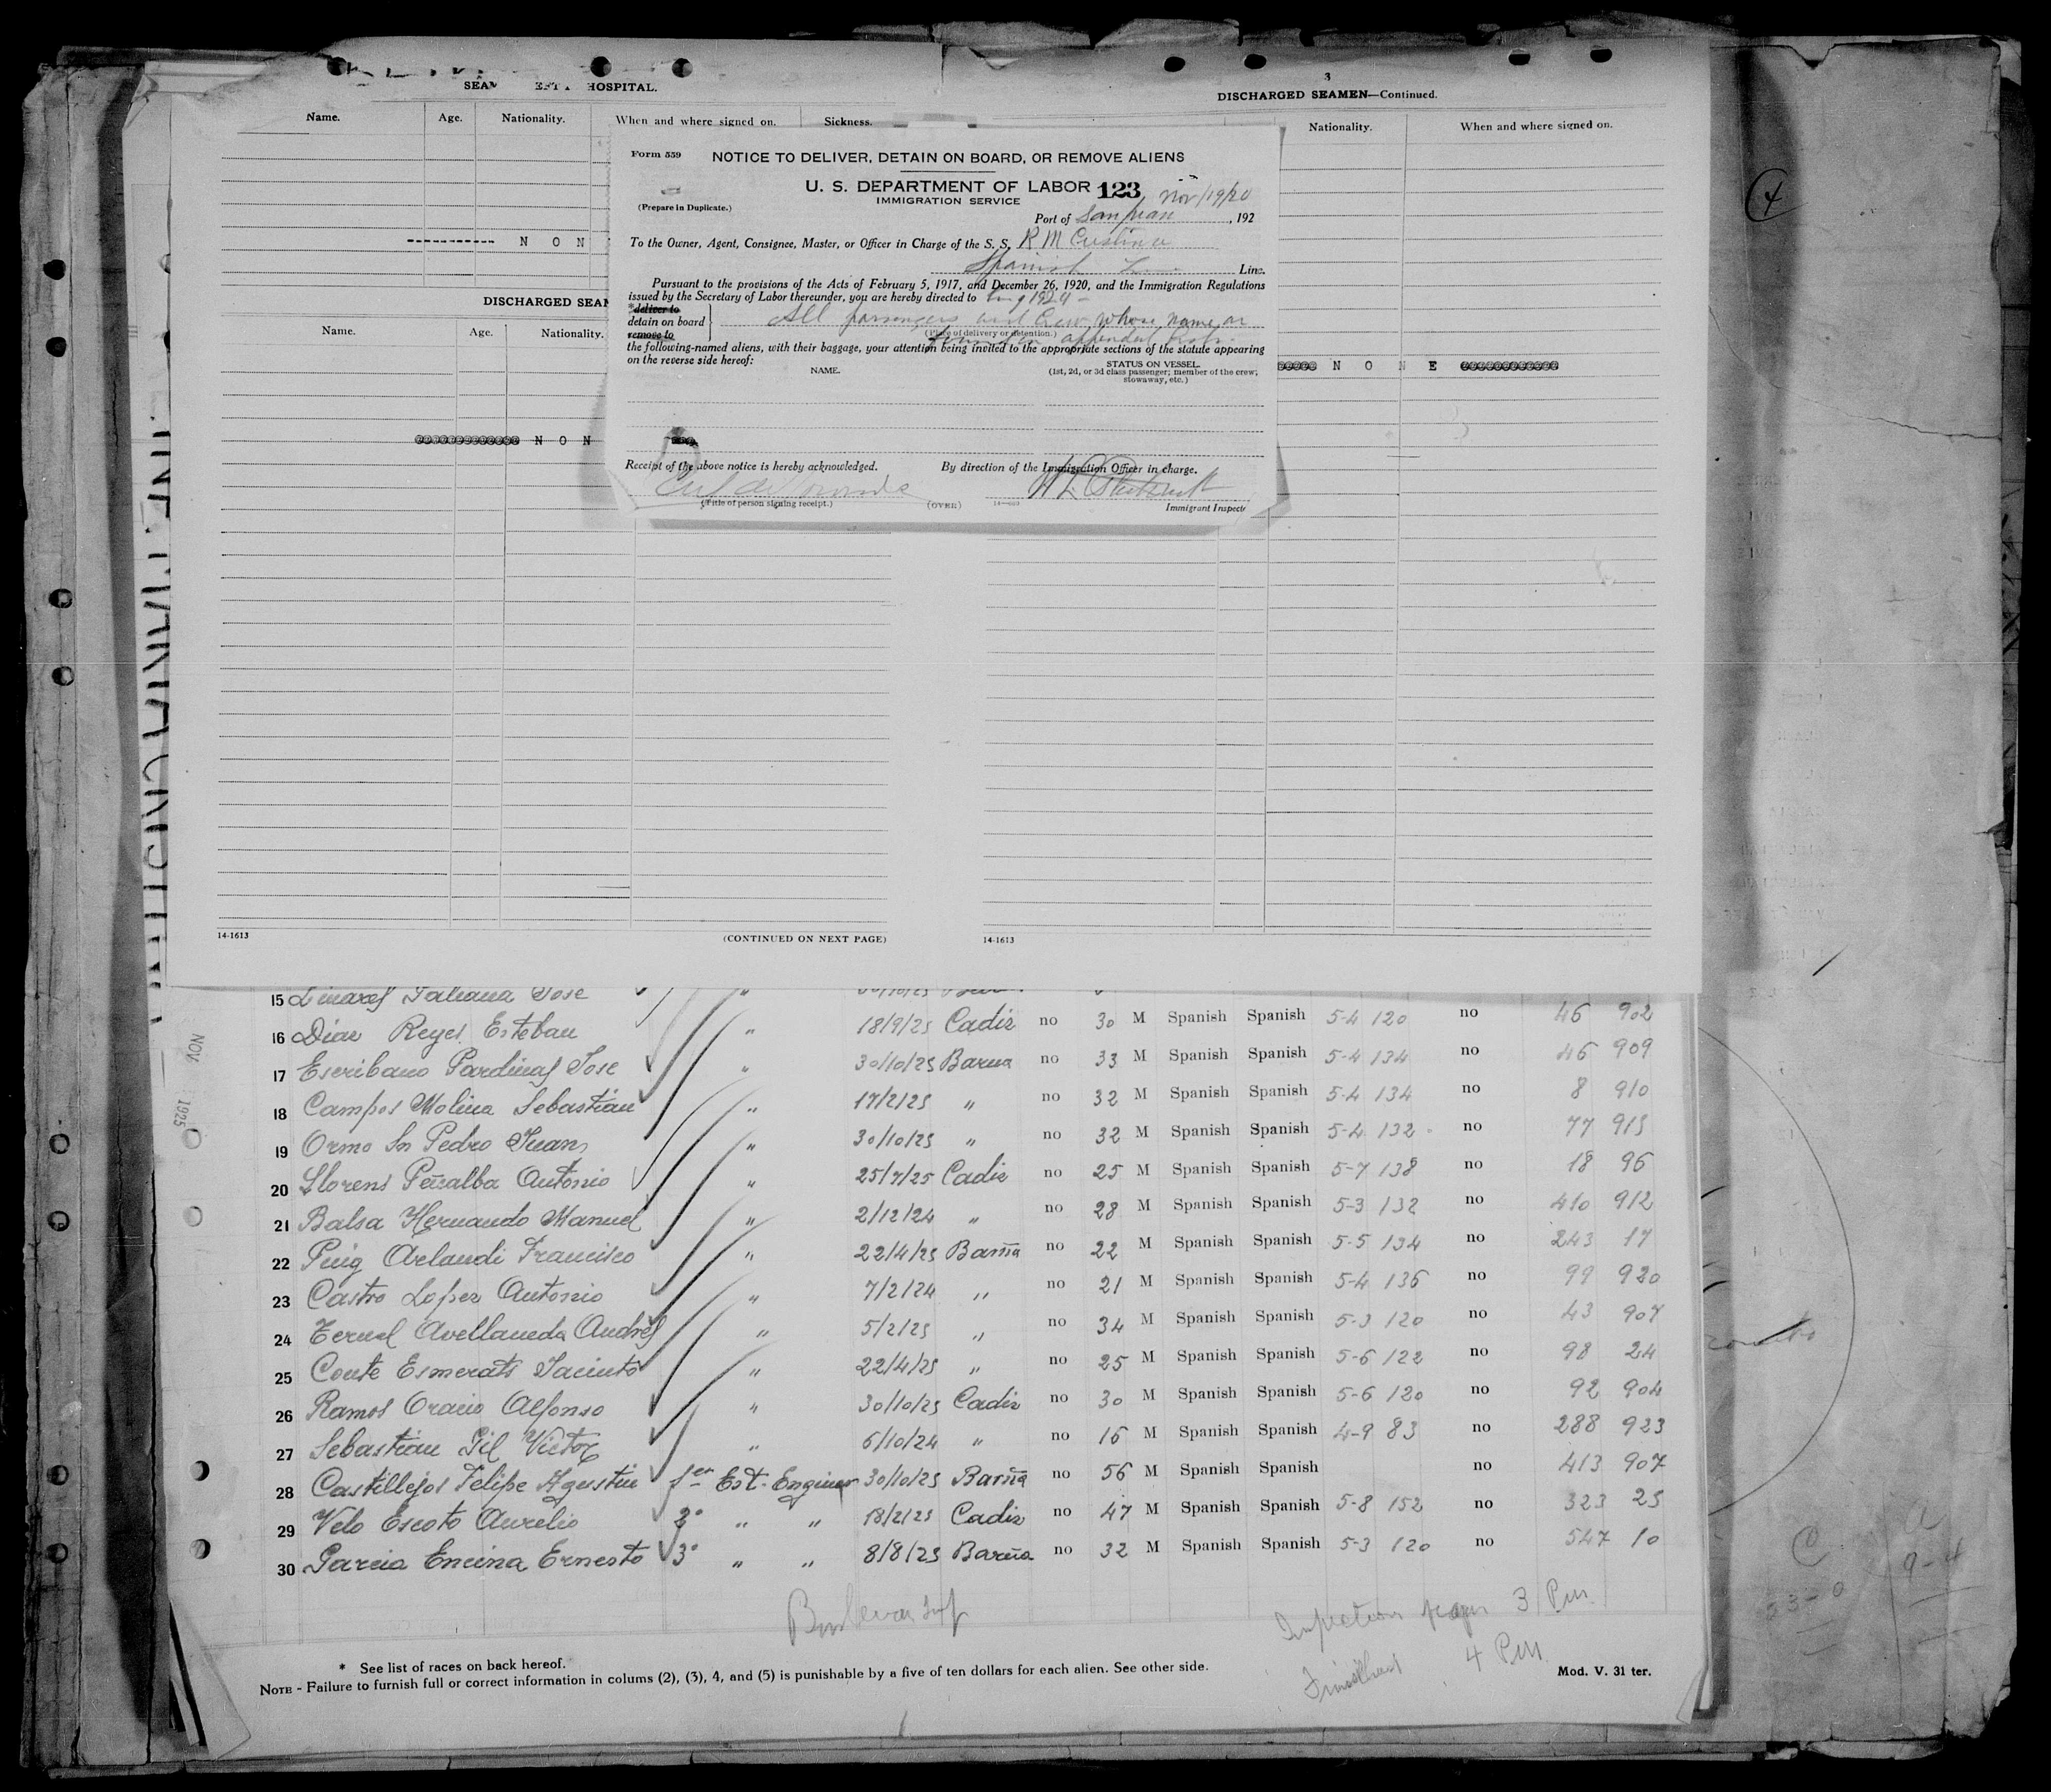 3
SEAM HOSPITAL.
DISCHARGED SEAMEN—Continued.
Name. Age. Nationality. When and where signed on. Sickness.
Nationality. When and where signed on.
N O N
DISCHARGED SEAM
Name. Age. Nationality.
N O N
N O N E
Form 559 NOTICE TO DELIVER, DETAIN ON BOARD, OR REMOVE ALIENS
U. S. DEPARTMENT OF LABOR 123
IMMIGRATION SERVICE
(Prepare in Duplicate.)
Nov/19/20
Port of San Juan, 192
To the Owner, Agent, Consignee, Master, or Officer in Charge of the S. S. R M Cristina
Spanish Line.
Pursuant to the provisions of the Acts of February 5, 1917, and December 26, 1920, and the Immigration Regulations
issued by the Secretary of Labor thereunder, you are hereby directed to 1924
*deliver to
detain on board
remove to
All passengers and Crew whose name
(Place of delivery or detention.)
the following-named aliens, with their baggage, your attention being invited to the appropriate sections of the statute appearing
on the reverse side hereof:
NAME. STATUS ON VESSEL.
(1st, 2d, or 3d class passenger; member of the crew;
stowaway, etc.)
Receipt of the above notice is hereby acknowledged. By direction of the Immigration Officer in charge.
(Title of person signing receipt.) (OVER) Immigrant Inspect
14-1613 (CONTINUED ON NEXT PAGE) 14-1613
NOV 1925
15 Linares Jose
16 Diaz Reyes Esteban " 18/9/25 Cadiz no 30 M Spanish Spanish 5-4 120 no 46 902
17 Escribano Pardinas Jose " 30/10/25 Barna no 33 M Spanish Spanish 5-4 134 no 46 909
18 Campos Molina Sebastian " 17/2/25 " no 32 M Spanish Spanish 5-4 134 no 8 910
19 Ormo Sn Pedro Juan " 30/10/25 " no 32 M Spanish Spanish 5-4 132 no 77 915
20 Llorens Peñalba Antonio " 25/7/25 Cadiz no 25 M Spanish Spanish 5-7 138 no 18 96
21 Balsa Hernando Manuel " 2/12/24 " no 28 M Spanish Spanish 5-3 132 no 410 912
22 Puig Arlandi Francisco " 22/4/25 Barna no 22 M Spanish Spanish 5-5 134 no 243 17
23 Castro Lopez Antonio " 7/2/24 " no 21 M Spanish Spanish 5-4 136 no 99 920
24 Teruel Avellaneda Andrés " 5/2/25 " no 34 M Spanish Spanish 5-3 120 no 43 907
25 Conte Esmerats Jacinto " 22/4/25 " no 25 M Spanish Spanish 5-6 122 no 98 24
26 Ramos Oracio Alfonso " 30/10/25 Cadiz no 30 M Spanish Spanish 5-6 120 no 92 904
27 Sebastián Gil Victor " 6/10/24 " no 16 M Spanish Spanish 4-9 83 no 288 923
28 Castillejos Felipe Agustin 1er Est. Engineer 30/10/25 Barña no 56 M Spanish Spanish no 413 907
29 Velo Escoto Aurelio 2º " " 18/2/25 Cadiz no 47 M Spanish Spanish 5-8 152 no 323 25
30 Garcia Encina Ernesto 3º " " 8/8/25 Barña no 32 M Spanish Spanish 5-3 120 no 547 10
Inspection began 3 P.m.
Finished 4 P.m.
* See list of races on back hereof.
NOTE - Failure to furnish full or correct information in colums (2), (3), 4, and (5) is punishable by a five of ten dollars for each alien. See other side.
Mod. V. 31 ter.